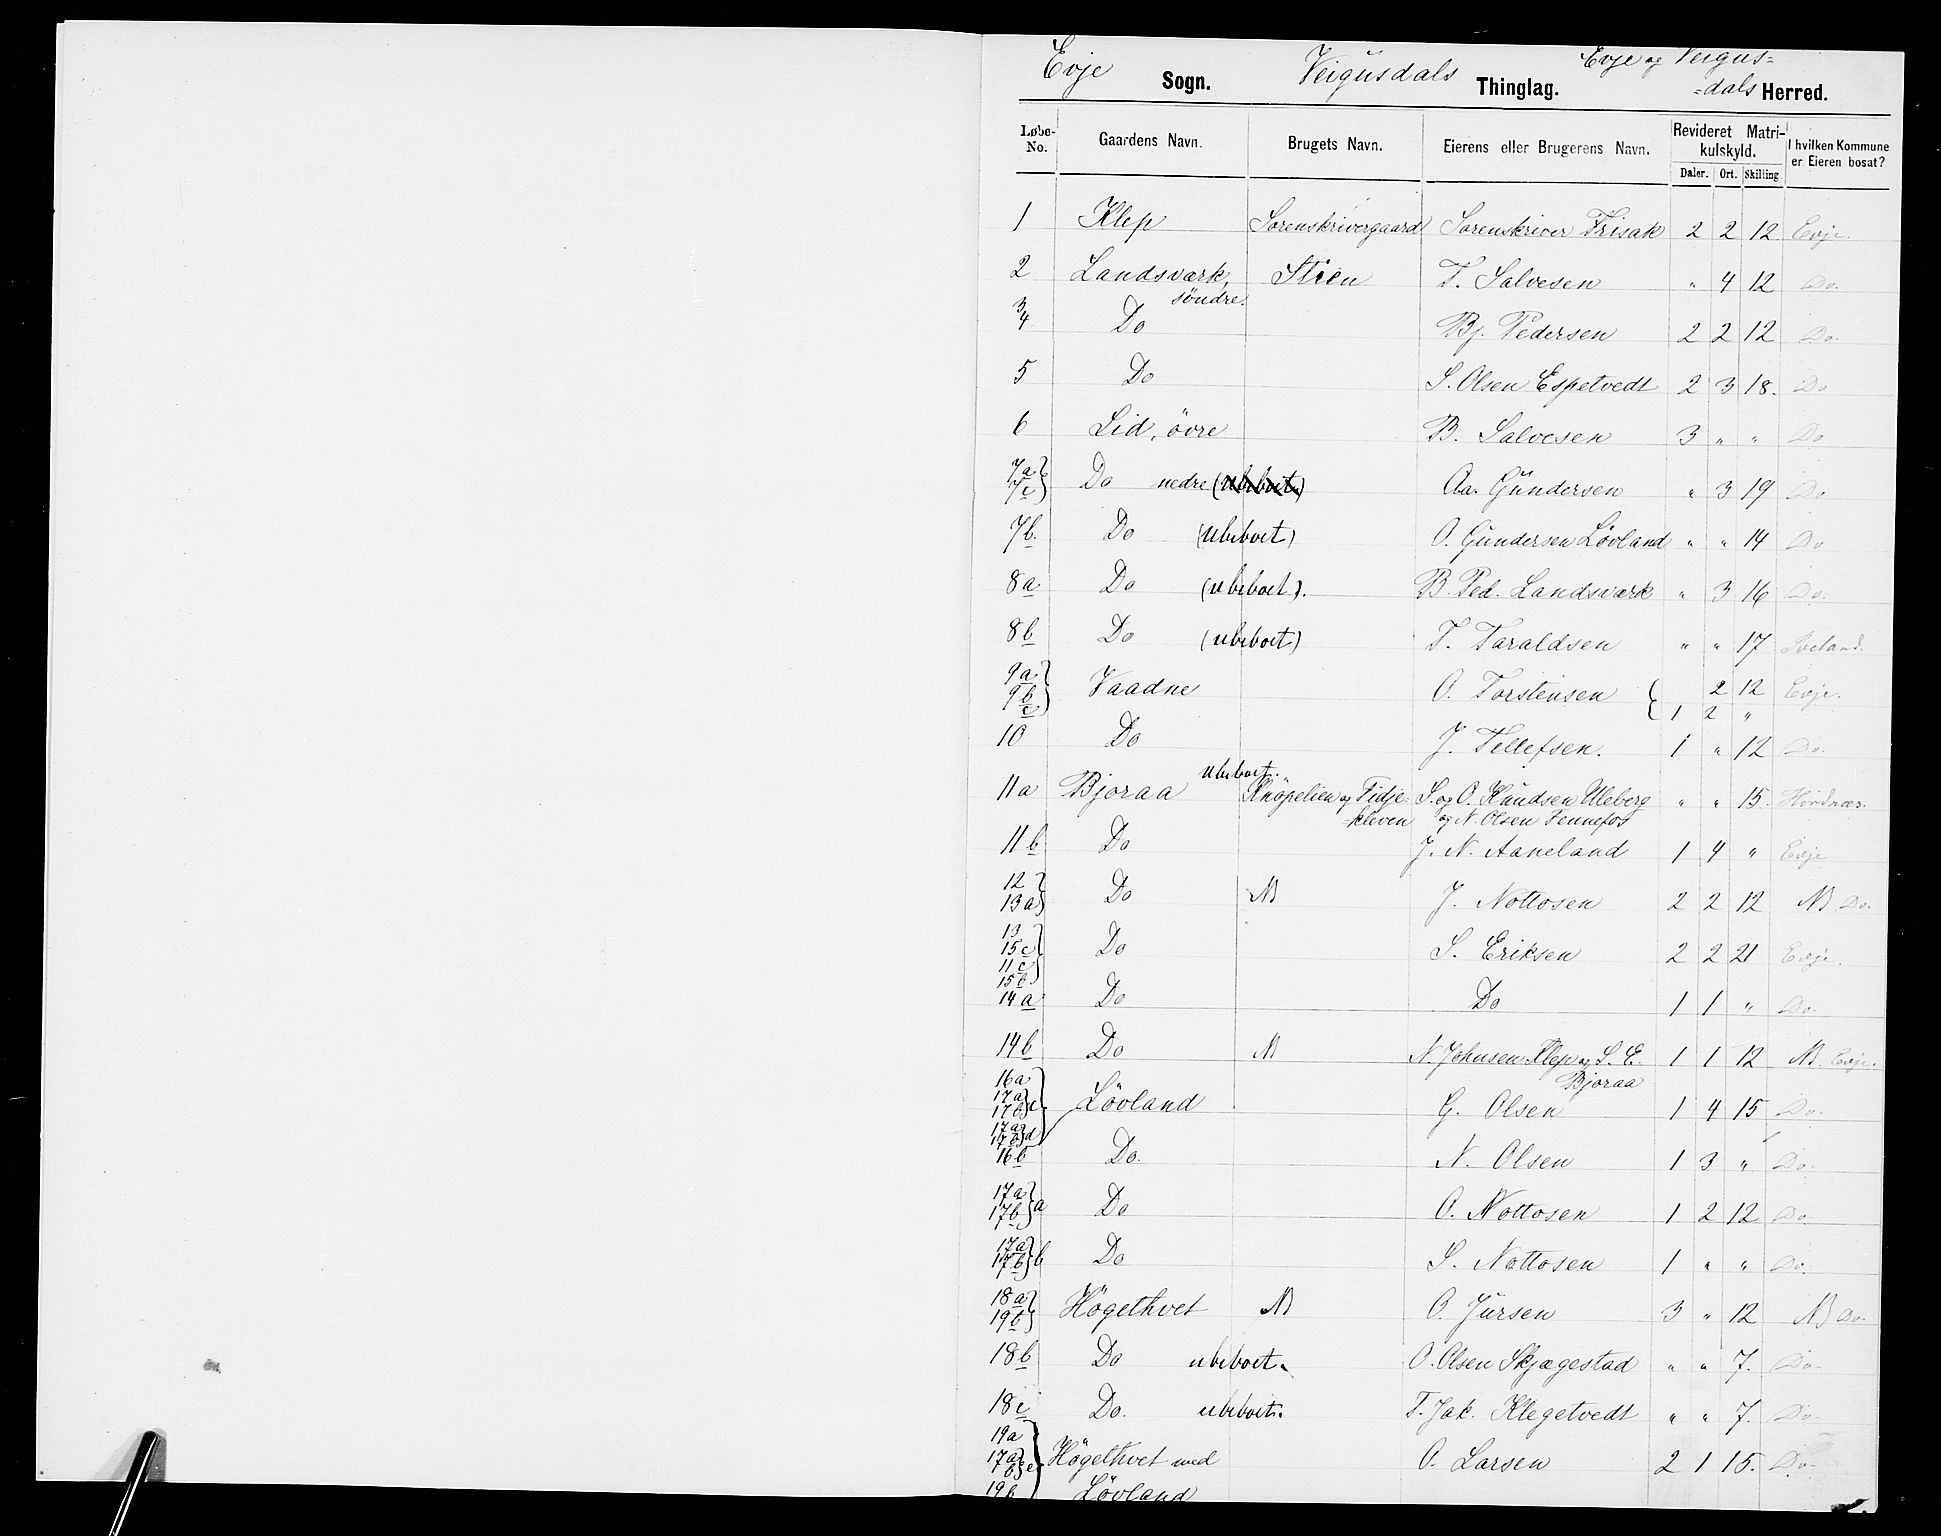 Evje Sogn. Veigusdals Thinglag. Evje og Veigus=
=dals Herred.
Løbe-No. Gaardens Navn. Brugets Navn. Eierens eller Brugerens Navn. Revideret Matrikulskyld. Daler. Ort. Skilling I hvilken Kommune er Eieren bosat?
1 Klep Sorenskrivergaard Sorenskriver Frisak 2 2 12 Evje.
2 Landsværk, søndre. Stien T. Salvesen " 4 12 Do.
3 4 Do Bj. Pedersen 2 2 12 Do.
5 Do S. Olsen Espetvedt 2 3 18. Do
6 Lid, övre B. Salvesen 3 " " Do
7a 7c Do nedre (ubeboet.) Aa. Gundersen " 3 19 Do
7b. Do (ubeboet) O. Gundersen Lövland " " 14 Do
8a Do (ubeboet). B. Ped. Landsværk " 3 16 Do.
8b Do (ubeboet) T. Taraldsen " " 17 Iveland.
9a Vaadne O. Torstensen 2 12 Evje.
9b c 1 2 "
10 Do J. Tellefsen. 1 " 12 Do.
11a Bjoraa ubeboet. Knapelien og Fidje= S. og O. Knudsen Uleberg " " 15. Hordnæs.
=kleven og N. Olsen Fennefos
11b Do J. N. Aaneland 1 4 " Evje
12 13a Do NB J. Nottosen 2 2 12 NB Do.
13 15c 11c 15b Do S. Eriksen 2 2 21 Evje.
14a Do Do 1 1 " Do.
14b Do NB N. Johnsen Klep og S. E. 1 1 12 NB. Evje.
Bjoraa
16a 17a 17b c 17a 17b d Lövland G. Olsen 1 4 15 Do.
16b Do. N. Olsen 1 3 " Do.
17a 17b a Do O. Nottosen 1 2 12 Do
17a 17b b Do S. Nottosen 1 " " Do.
18a 19b Högethvet NB O. Jursen 3 " 12 NB Do.
18b Do ubeboet. O. Olsen Skjægestad " " 7. Do
18c Do. ubeboet. T. Jak. Klegetvedt " " 7. Do
19a 17a b e Högethvet med O. Larsen 2 1 15. Do
19b Lövland